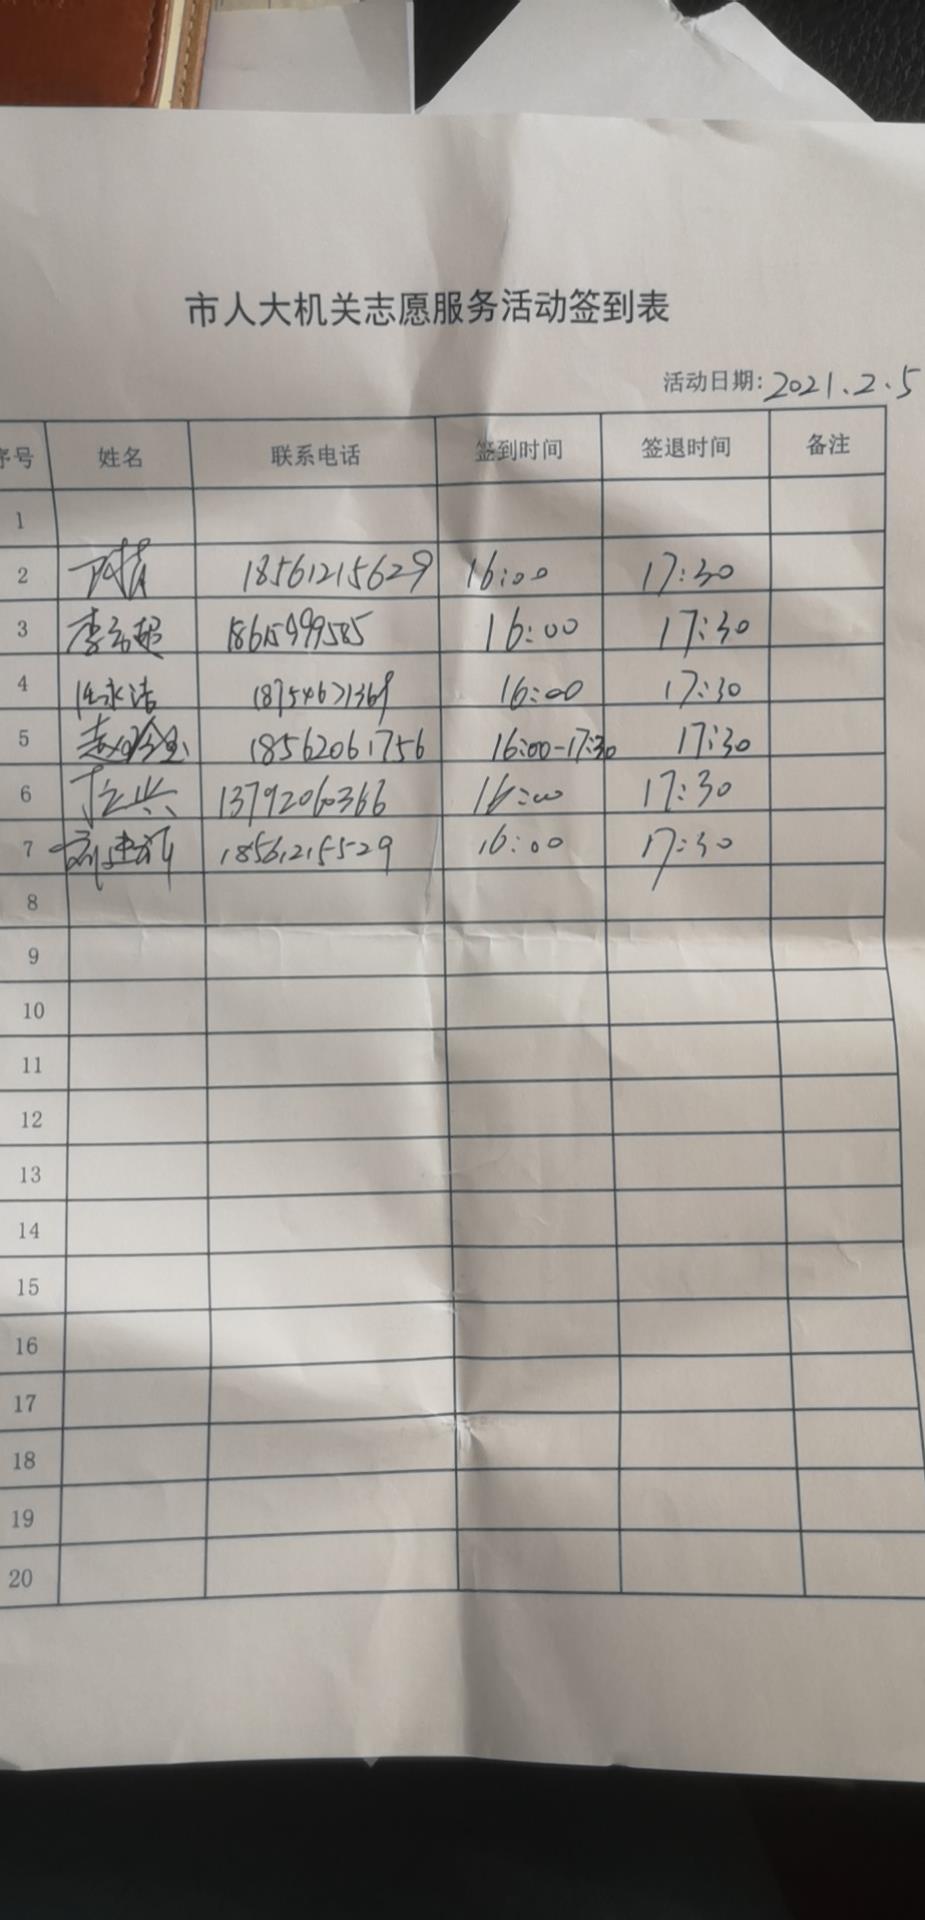 市人大机关志愿服务活动签到表
活动日期: 2021.2.5
序号 姓名 联系电话 签到时间 签退时间 备注
1
2 18561215629 16:00 17:30
3 18615999585 16:00 17:30
4 任永洁 18754671369 16:00 17:30
5 18562061756 16:00-17:30 17:30
6 13792060366 16:00 17:30
7 18561215529 16:00 17:30
8
9
10
11
12
13
14
15
16
17
18
19
20